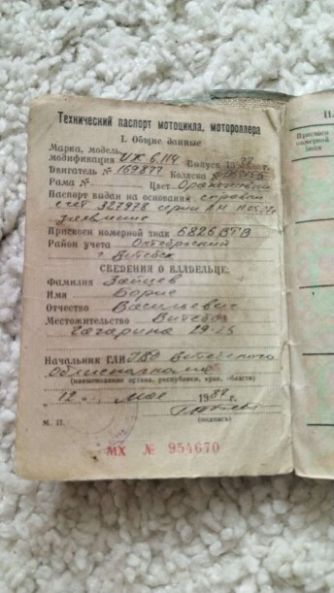 Технический паспорт мотоцикла, мотороллера
I. Общие данные
Марка, модель,
модификация ИЖ 6.114 Выпуск 19
Двигатель № 169877 Коляска №
Рама № — Цвет Оранжевый
Паспорт выдан на основании справки
счет 327978 серии
заявление
Присвоен номерной знак 6826 ВТВ
Район учета Октябрьский
г. Витебск
СВЕДЕНИЯ О ВЛАДЕЛЬЦЕ:
Фамилия Зайцев
Имя Борис
Отчество Васильевич
Местожительство Витебск
Гагарина 29-25
Начальник ГАИ УВД Витебского
Облисполкома
(наименование органа, республики, края, области)
"12" мая 1989 г.
М. П. (подпись)
МХ № 954670
Присвоен
номерной